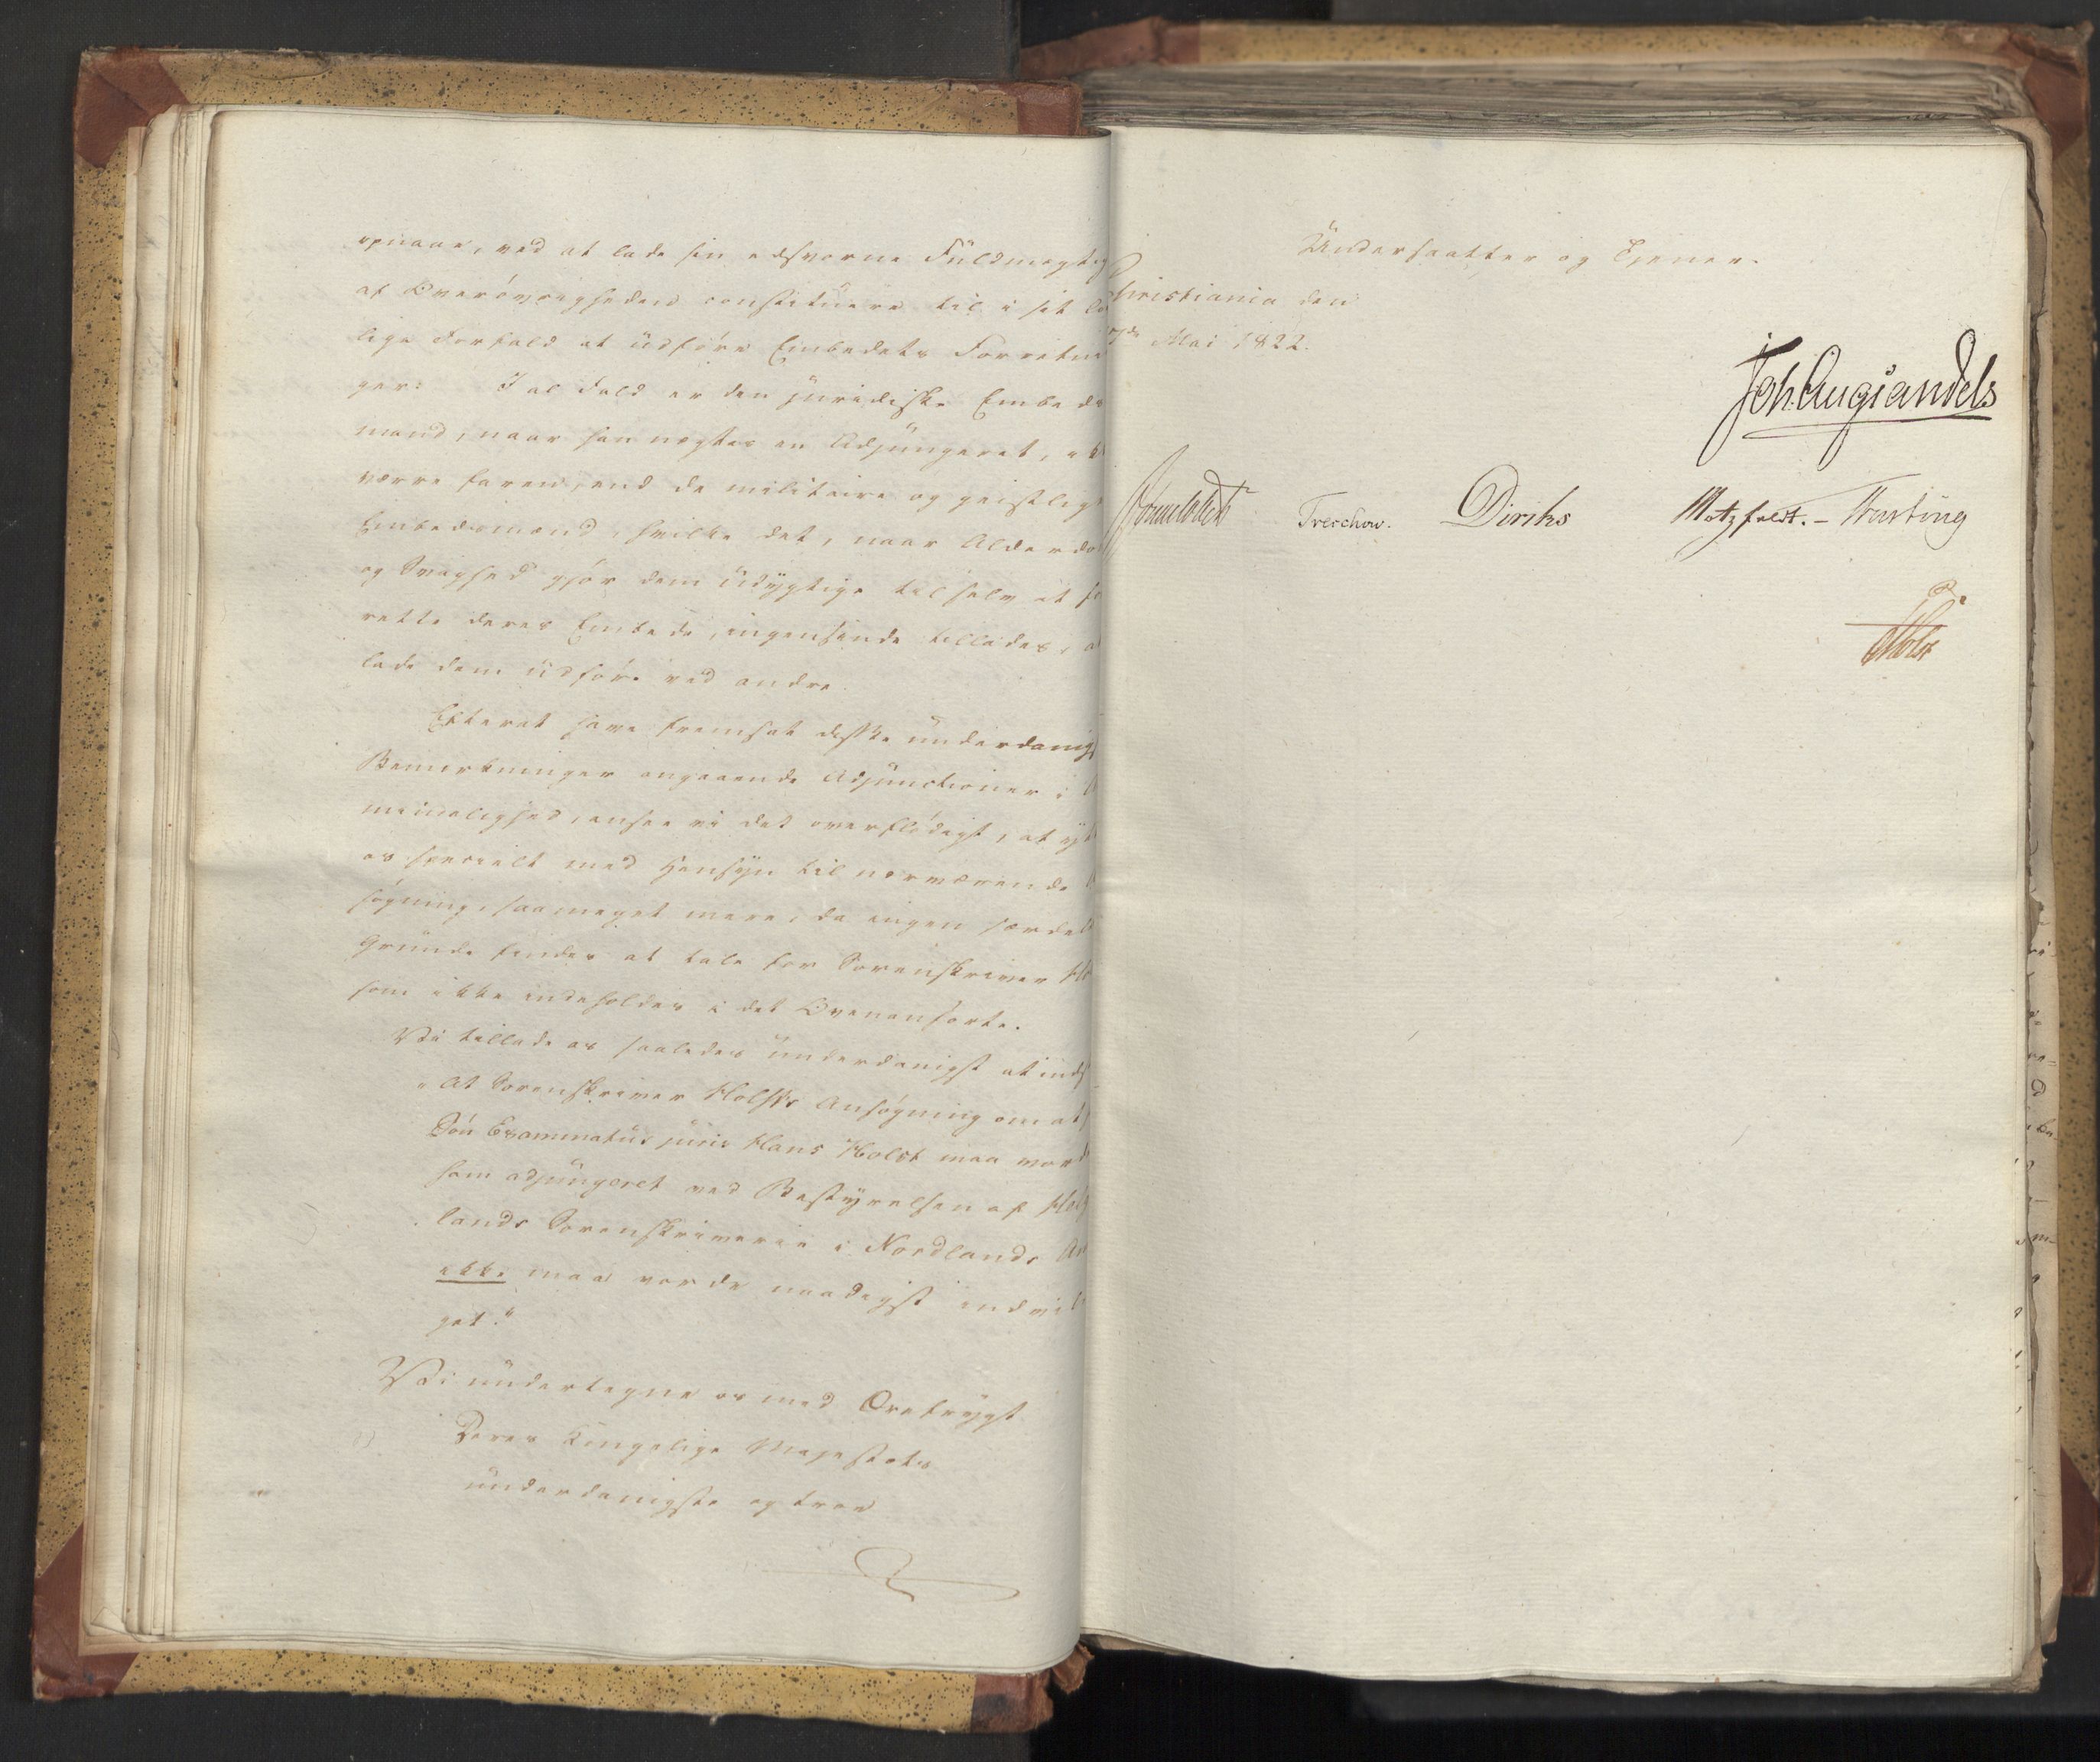 opnaae, ved at lade sin edsvorne Fuldmægtig
af Overøvrigheden constituere til i sit
lige Forfald at udføre Embedets Forretnin
ger. I al Fald er den juridiske Embeds
mand, naar han negtes en Adjungeret, ikk
værre faren, end de militaire og geistlige
Embedsmænd, hvilke det, naar Alderdom
og Svaghed gjør dem udygtige til selv at fo
rette deres Embede, ingensinde tillades, at
lade dem udføre ved andre.
Efterat have fremsat disse underdanige
Bemærkninger angaaende Adjunctioner i
mindelighed, ansee vi det overflødigt, at ytt
os specielt med Hensyn til nærværende
søgning, saa meget mere, da ingen særdel
Grunde findes at tale for Sorenskriver Ho
som ikke indeholdes i det Ovenanførte.
Vi tillade os saaledes underdanigst at inds
"At Sorenskriver Holsts Ansøgning om at
Søn Examinatus juris Hans Holst maa vord
ham adjungeret ved Bestyrelsen af Helg
lands Sorenskriverie i Nordlands Am
ikke maa vorde naadigst indvil
get."
Vi undertegne os med Ærefrygt
Deres Kongelige Majestæts
underdanigste og troe
Undersaatter og Tjenere.
Christiania den
Mai 1822.
Joh. Aug Sandels
Sommerhielm Treschow. Diriks Motzfeldt. – Fasting
Holst